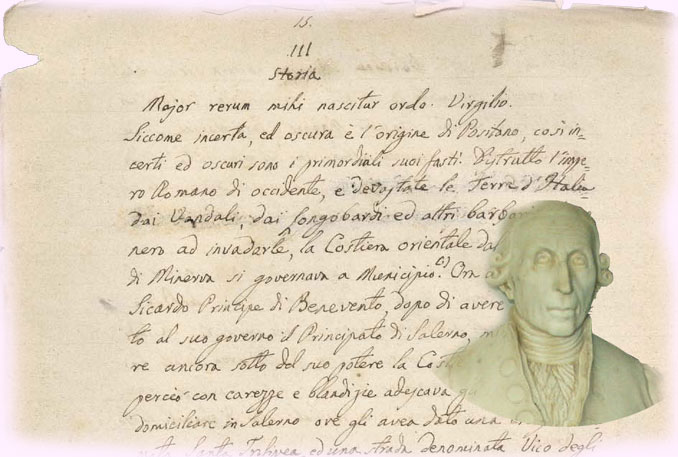 15.
III
Storia
Major rerum mihi nascitur ordo. Virgilio.
Siccome incerta, ed oscura è l'origine di Positano, così in=
certi ed oscuri sono i primordiali suoi fasti. Distrutto l'impe=
ro Romano di occidente, e devastate le Terre d'Italia
dai Vandali, dai Longobardi ed altri
nero ad invaderle, la Costiera orientale
di Minerva si governava a Municipio. Ora
Sicardo Principe di Benevento, dopo di avere
to al suo governo il Principato di Salerno,
re ancora sotto del suo potere la
perciò con carezze e blandizie adescava
domiciliare in Salerno ove gli avea dato una
ed una strada denominata Vico degli